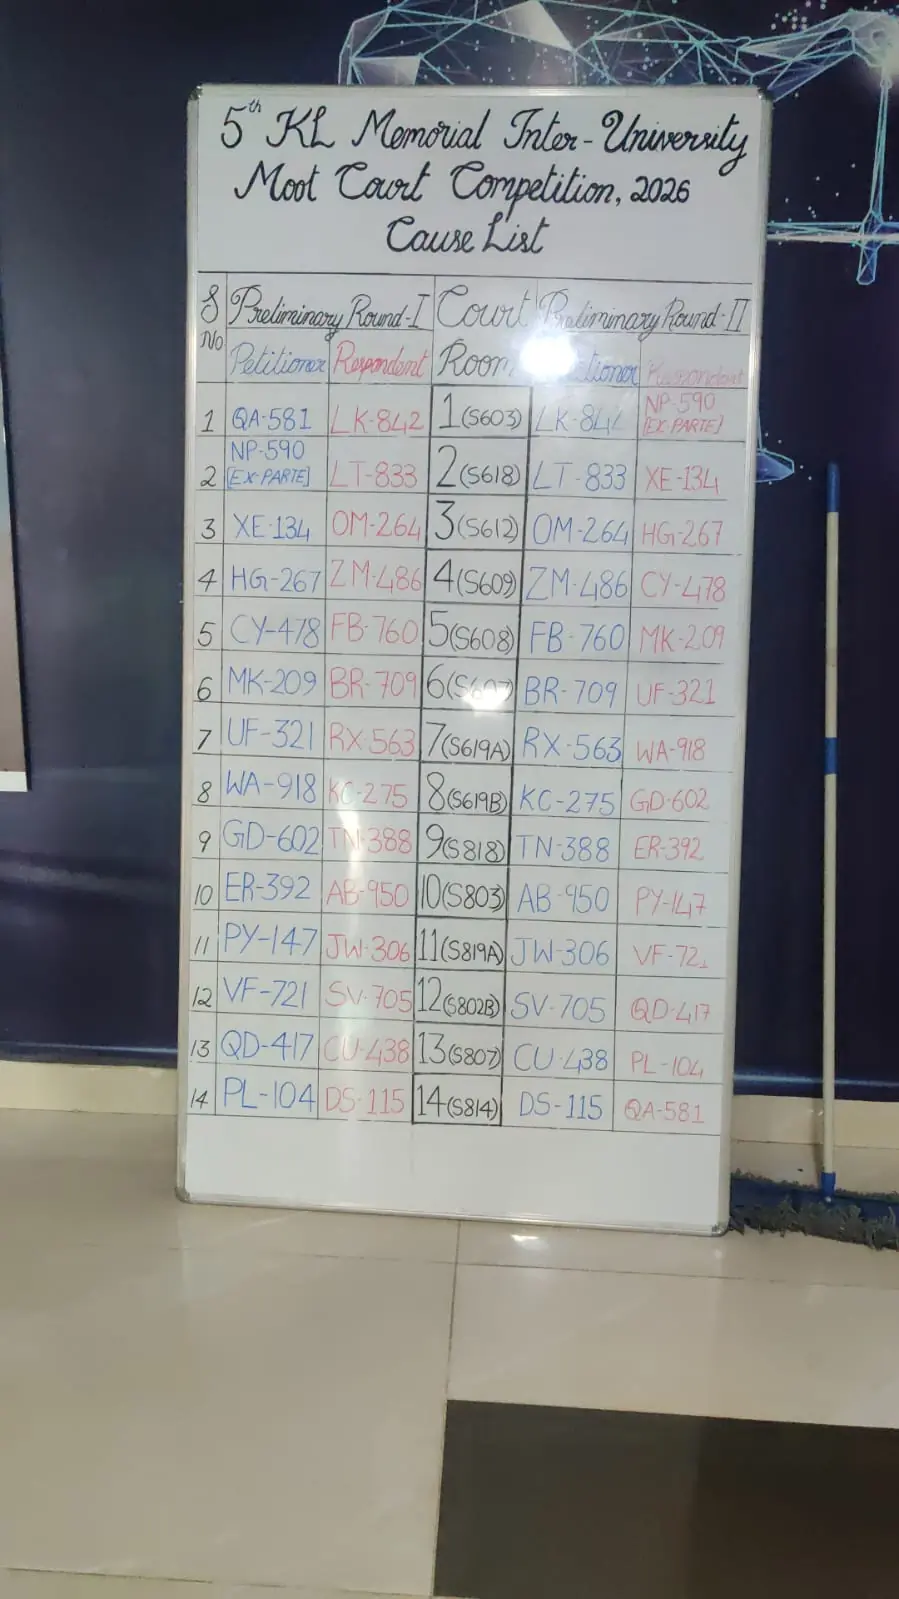 5th KL Memorial Inter-University
Moot Court Competition, 2026
Cause List
S No Preliminary Round-I Court Room Preliminary Round-II
Petitioner Respondent Respondent
1 QA-581 LK-842 1(S603) NP-590 [EX-PARTE]
2 NP-590 [EX-PARTE] LT-833 2(S618) LT-833 XE-134
3 XE-134 OM-264 3(S612) OM-264 HG-267
4 HG-267 ZM-486 4(S609) ZM-486 CY-478
5 CY-478 FB-760 5(S608) FB-760 MK-209
6 MK-209 BR-709 BR-709 UF-321
7 UF-321 RX-563 7(S619A) RX-563 WA-918
8 WA-918 KC-275 8(S619B) KC-275 GD-602
9 GD-602 TN-388 9(S818) TN-388 ER-392
10 ER-392 AB-950 10(S803) AB-950 PY-147
11 PY-147 JW-306 11(S819A) JW-306 VF-721
12 VF-721 SV-705 12(S802B) SV-705 QD-417
13 QD-417 CU-438 13(S807) CU-438 PL-104
14 PL-104 DS-115 14(S814) DS-115 QA-581